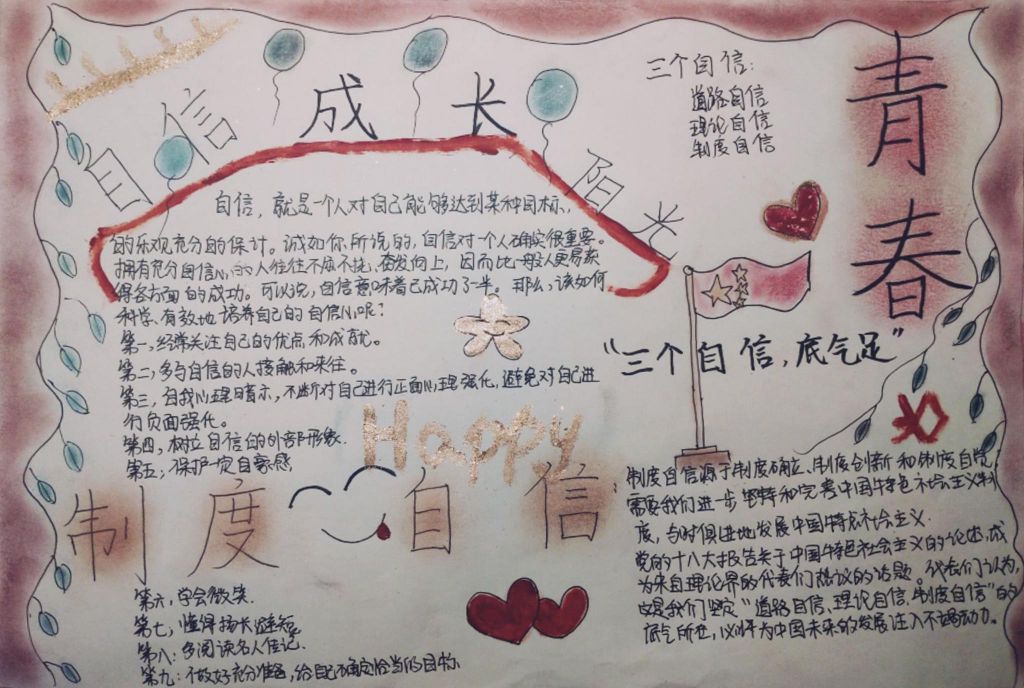 自信 成长 阳光
青春
三个自信:
道路自信
理论自信
制度自信
自信,就是一个人对自己能够达到某种目标,
的乐观充分的估计。诚如你所说的,自信对一个人确实很重要。
拥有充分自信心的人往往不屈不挠、奋发向上,因而比一般人更易获
得各方面的成功。可以说,自信意味着已成功了一半。那么,该如何
科学、有效地培养自己的自信心呢?
第一,经常关注自己的优点和成就。
第二,多与自信的人接触和来往。
第三,自我心理暗示,不断对自己进行正面心理强化,避免对自己进
行负面强化。
第四,树立自信的外部形象.
第五,保护一定自豪感
"三个自信,底气足"
Happy
制度自信
第六,学会微笑.
第七,懂得扬长避短.
第八:多阅读名人传记.
第九:做好充分准备,给自己确定恰当的目标.
制度自信源于制度确立、制度创新和制度自觉
需要我们进一步坚持和完善中国特色社会主义制
度,与时俱进地发展中国特色社会主义.
党的十八大报告关于中国特色社会主义的论述,成
为来自理论界的代表们热议的话题。代表们认为,
这是我们坚定"道路自信、理论自信、制度自信"的
底气所在,必将为中国未来的发展注入不竭动力。